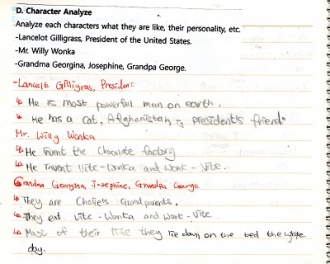 D. Character Analyze
Analyze each characters what they are like, their personality, etc
-Lancelot Gilligrass, President of the United States.
-Mr. Willy Wonka
-Grandma Georgina, Josephine, Grandpa George.
-Lancelb Gilligras, President
↳ He is most powerful man on earth.
↳ He has a cat, Afghanistan is president's friend
Mr. Willy Wonka
↳ He the Chocolate factory
↳ He Invent Vite-Wonka and Wonk-Vite.
Grandma Georgina, Josephine, Grandpa George
↳ They are Grandparents.
↳ They eat Vite-Wonka and Wonk-Vite.
↳ Most of their life they lie down on the bed the whole
day.